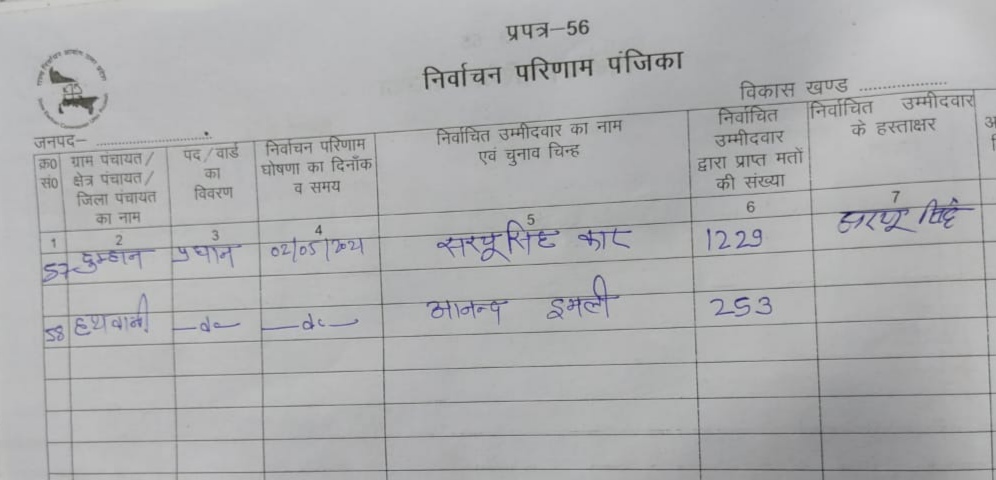 प्रपत्र–56
निर्वाचन परिणाम पंजिका
विकास खण्ड ....................
जनपद– ............................
क्र0 सं0
ग्राम पंचायत/ क्षेत्र पंचायत/ जिला पंचायत का नाम
पद/वार्ड का विवरण
निर्वाचन परिणाम घोषणा का दिनाँक व समय
निर्वाचित उम्मीदवार का नाम एवं चुनाव चिन्ह
निर्वाचित उम्मीदवार द्वारा प्राप्त मतों की संख्या
निर्वाचित उम्मीदवार के हस्ताक्षर
1 2 3 4 5 6 7
57 दुम्हान प्रधान 02/05/2021 सरयू सिंह कार 1229 सरयू सिंह
58 हथवानी —do— —do— आनन्द इमली 253